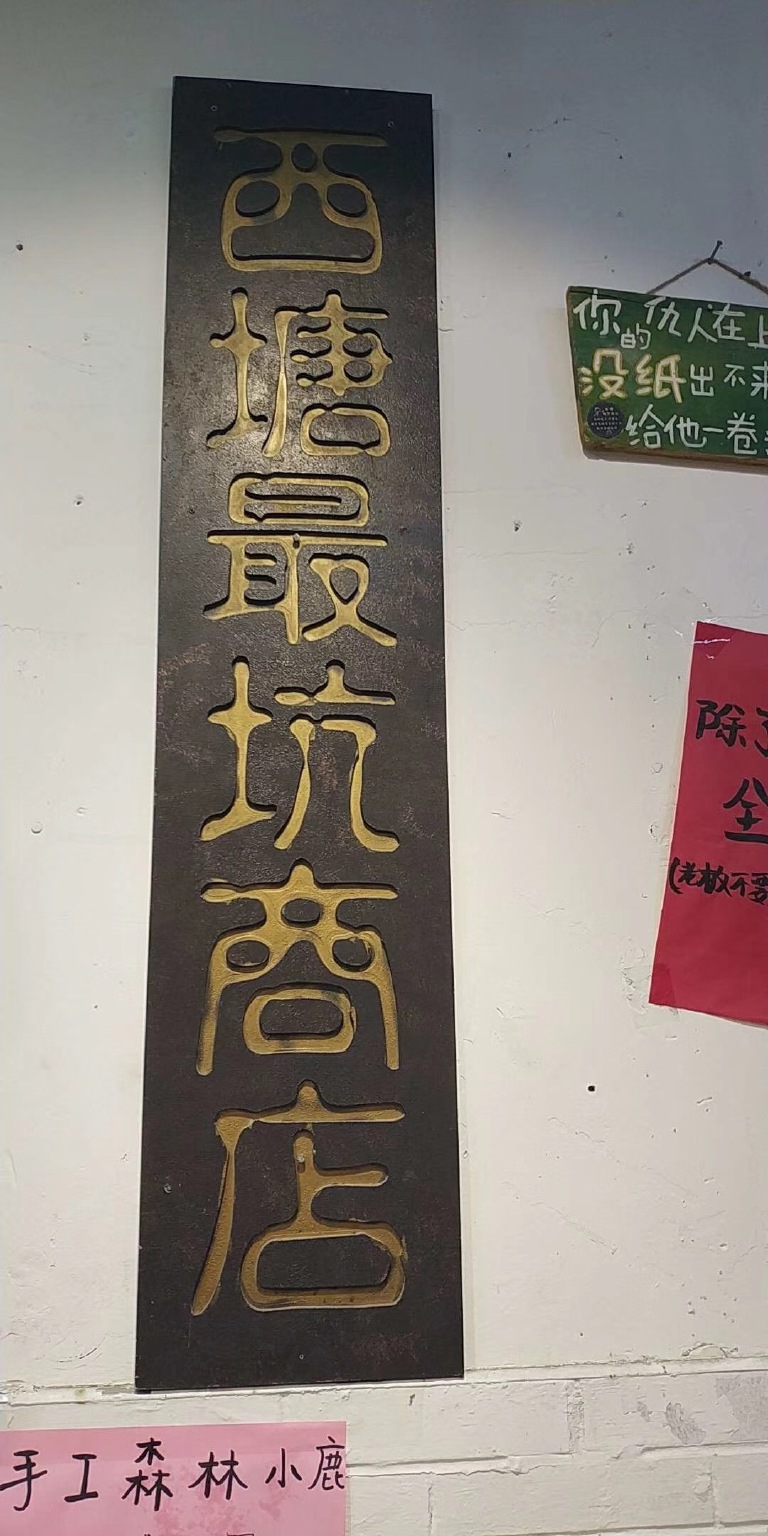 西塘最坑商店
你的仇人在上
没纸出不来
给他一卷
除了
全
(老板不要
手工森林小鹿